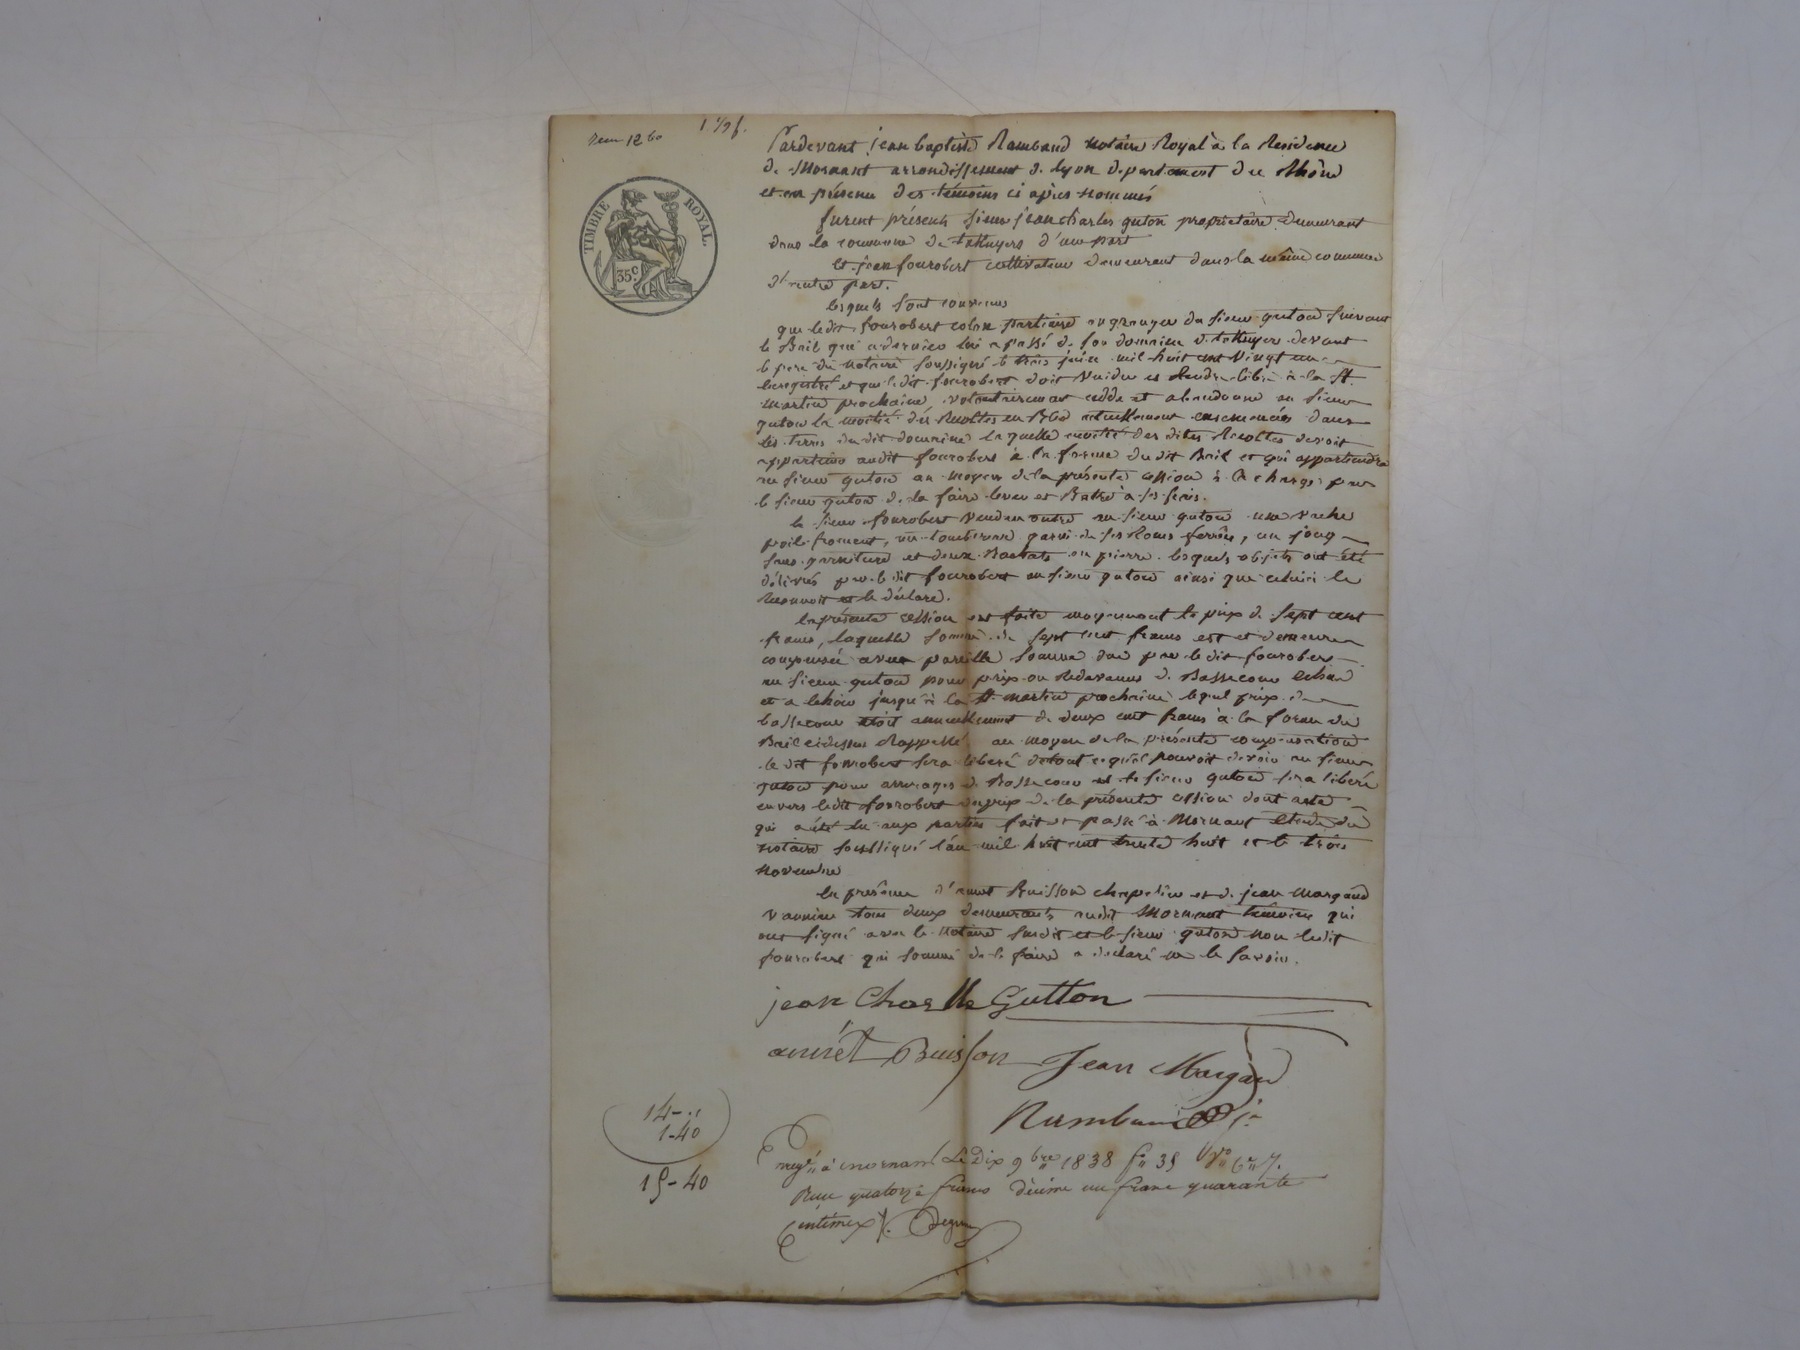 1 1/2 f.
TIMBRE ROYAL.
35.c
Pardevant jean baptiste Rambaud notaire Royal à la Residence
de Mornant arrondissement de Lyon departement du Rhône
et en présence des témoins ci après nommés
furent présents sieur jean charles guton propriétaire demeurant
dans la commune de taluyers d'une part
Et jean fourobert cultivateur demeurant dans la même commune
d'autre part.
lesquels sont convenus
que ledit fourobert colon partiaire ou granger du sieur guton suivant
le Bail que ce dernier lui a passé de son domaine de taluyers devant
le pere du notaire soussigné le trois juin mil huit cent vingt un
Enregistré et que ledit fourobert doit vuider et Rendre libre à la St.
martin prochaine, volontairement cedde et abandonne au sieur
guton la moitié des Recoltes en Bled actuellement ensemencées dans
les terres du dit domaine laquelle moitié des dites Recoltes devoit
appartenir audit fourobert à la forme du dit Bail et qui appartiendra
au sieur guton au moyen de la présente cession à la charge par
le sieur guton de la faire lever et Battre à ses frais.
le sieur fourobert vend en outre au sieur guton une vache
poil froment, un tombereau garni de ses Roues ferrées, un joug
sans garniture et deux Bachats en pierre lesquels objets ont été
délivrés par le dit fourobert au sieur guton ainsi que celui ci le
Reconnoit et le déclare.
la présente cession est faite moyennant le prix de sept cent
francs, laquelle somme de sept cent francs est et demeure
compensée avec pareille somme due par le dit fourobert
au sieur guton pour prix ou Redevances de Bassecour echus
et a echoir jusqu'à la St. martin prochaine lequel prix de
bassecour etoit annuellement de deux cent francs à la forme du
Bail cidessus Rappellé. au moyen de la présente compensation
le dit fourobert sera liberé detout ce qu'il pouvoit devoir au sieur
guton pour arrerages de Bassecour et le sieur guton sera liberé
envers ledit fourobert du prix de la présente cession dont acte
qui a été lu aux parties fait et passé à Mornant Etude du
notaire soussigné l'an mil huit cent trente huit et le trois
novembre
En présence d'annet Buisson chapelier et de jean margand
vannier tous deux demeurants audit Mornant témoins qui
ont signé avec le notaire susdit et le sieur guton non ledit
fourobert qui sommé de le faire a déclaré ne le savoir.
jean Charlle Gutton
annét Buisson Jean Margand
Rambaud jne
14-"
1-40
15-40
Enregé à mornant Le Dix 9bre 1838 fo 35 Vo
Reçu quatorze francs décime un franc quarante
Centimes